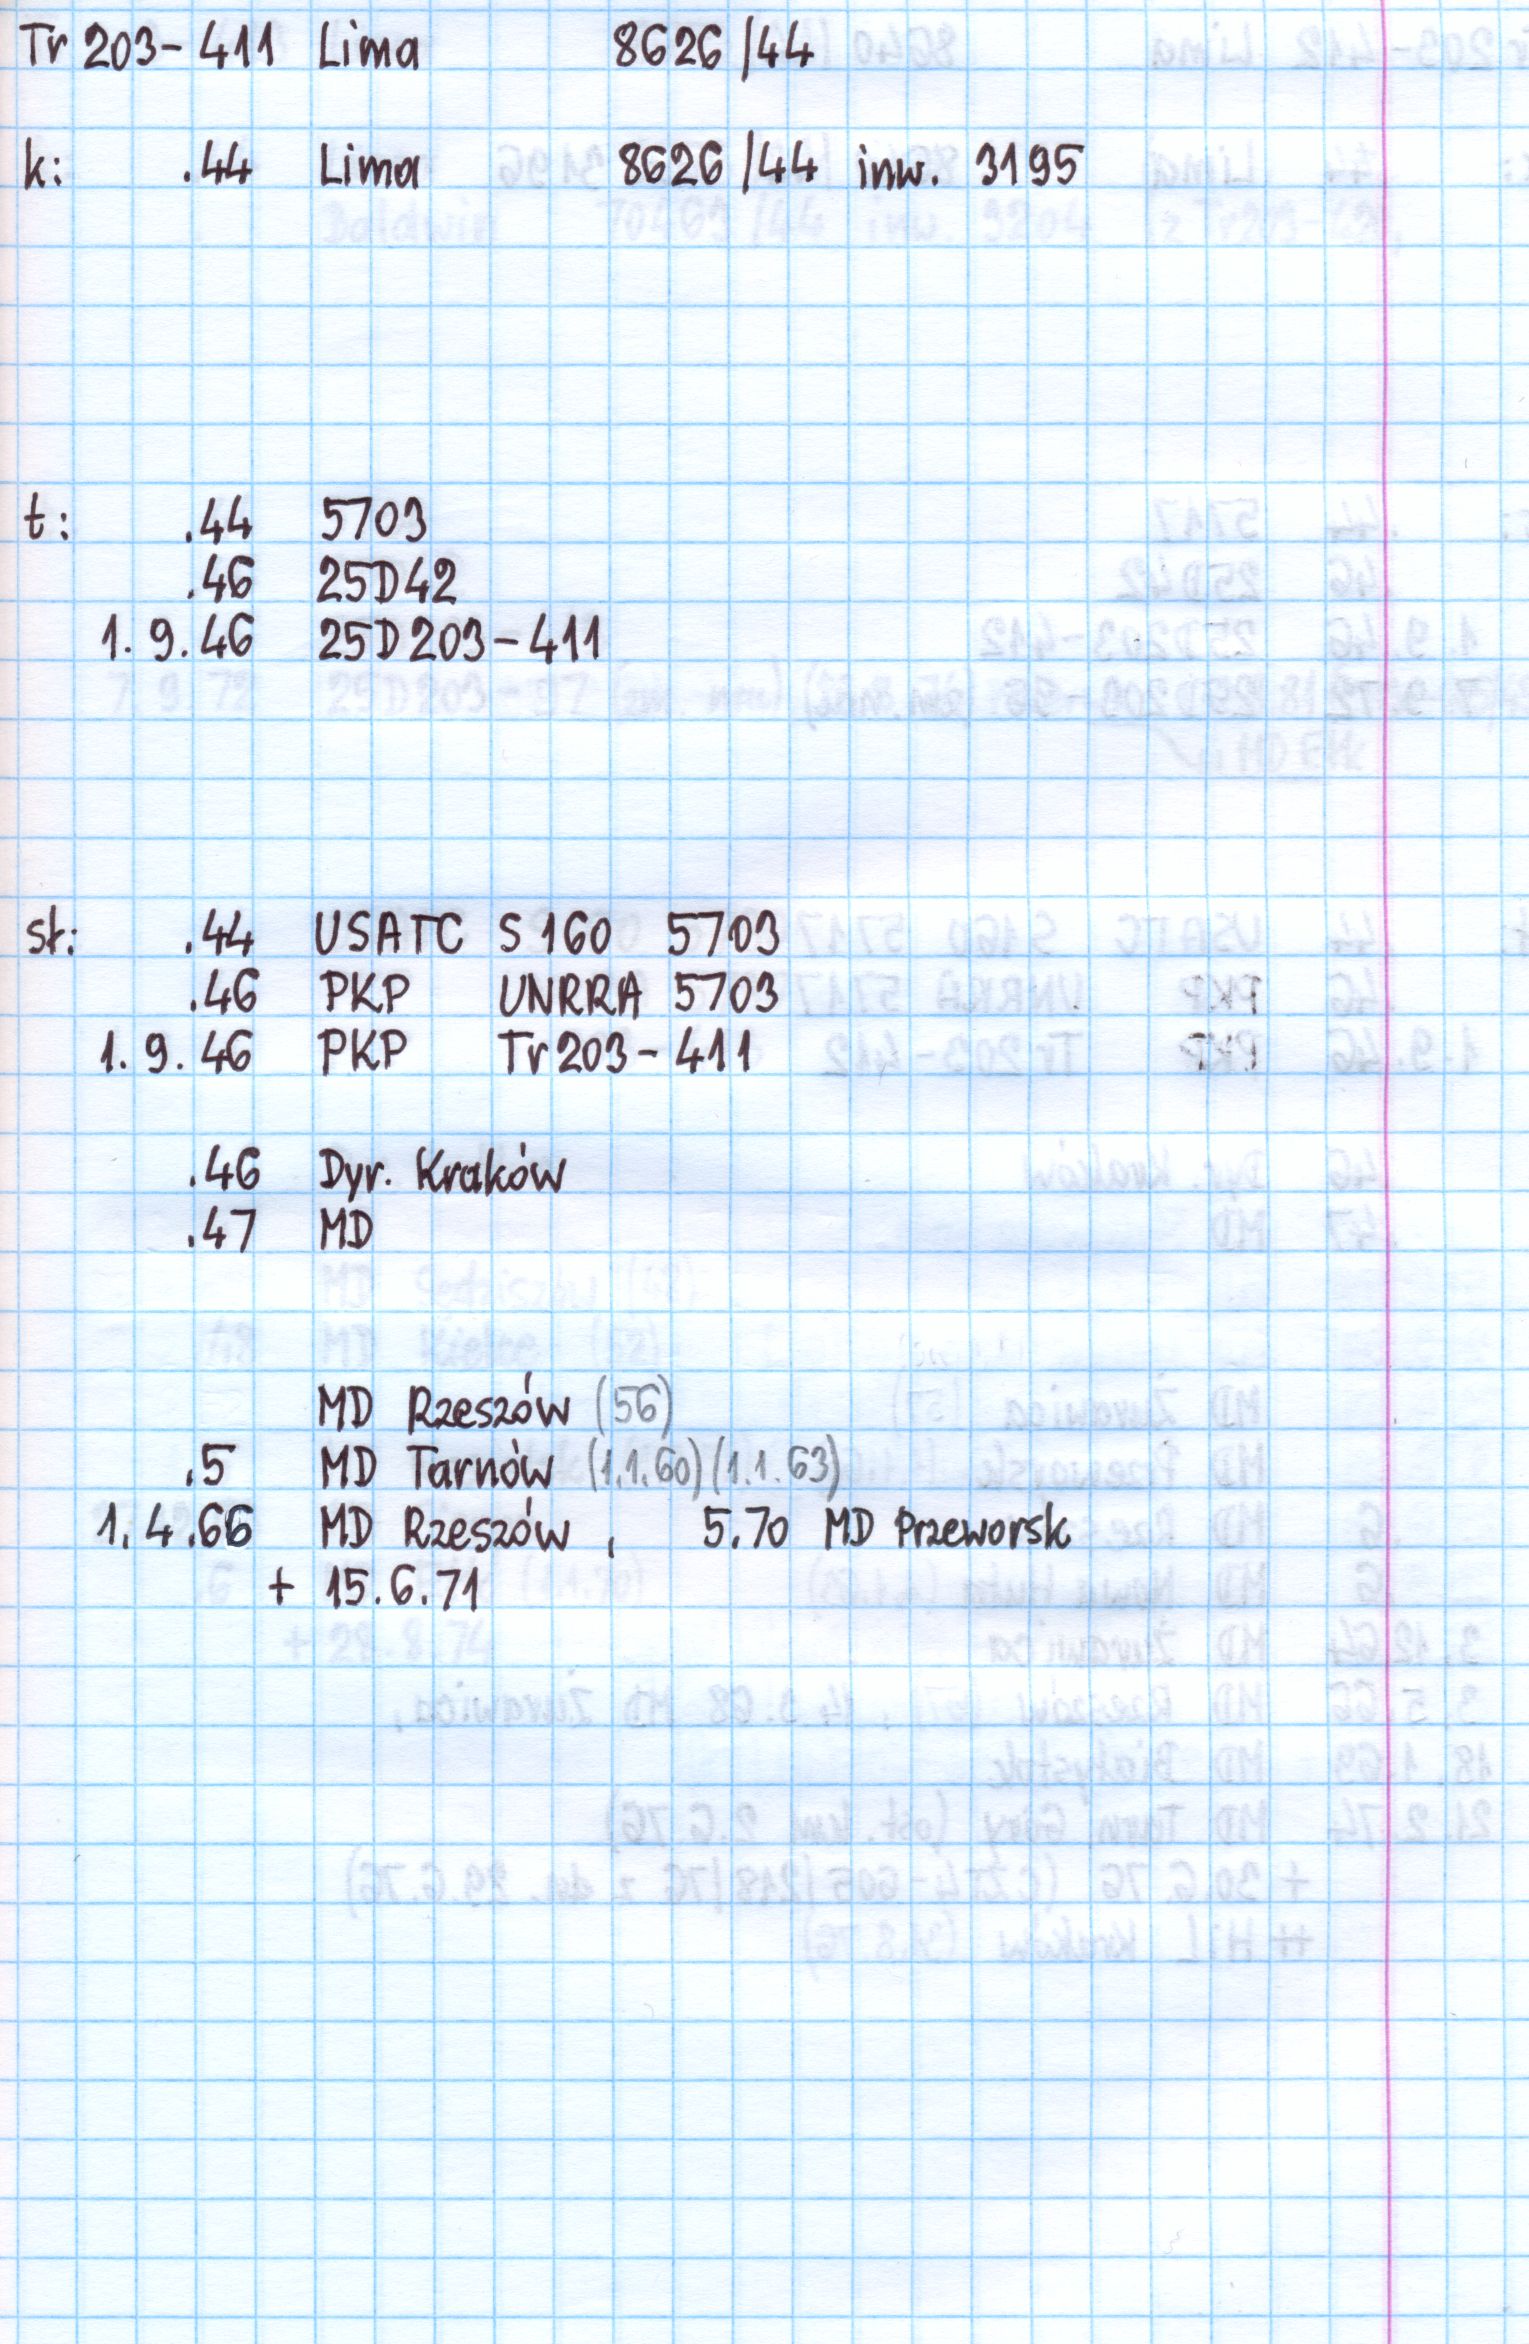 Tr 203-411 Lima 8626/44
k: .44 Lima 8626/44 inw. 3195
t: .44 5703
.46 25D42
1.9.46 25D203-411
st: .44 USATC S160 5703
.46 PKP UNRRA 5703
1.9.46 PKP Tr203-411
.46 Dyr. Kraków
.47 MD
MD Rzeszów (56)
.5 MD Tarnów (1.1.60) (1.1.63)
1.4.66 MD Rzeszów, 5.70 MD Przeworsk
+ 15.6.71